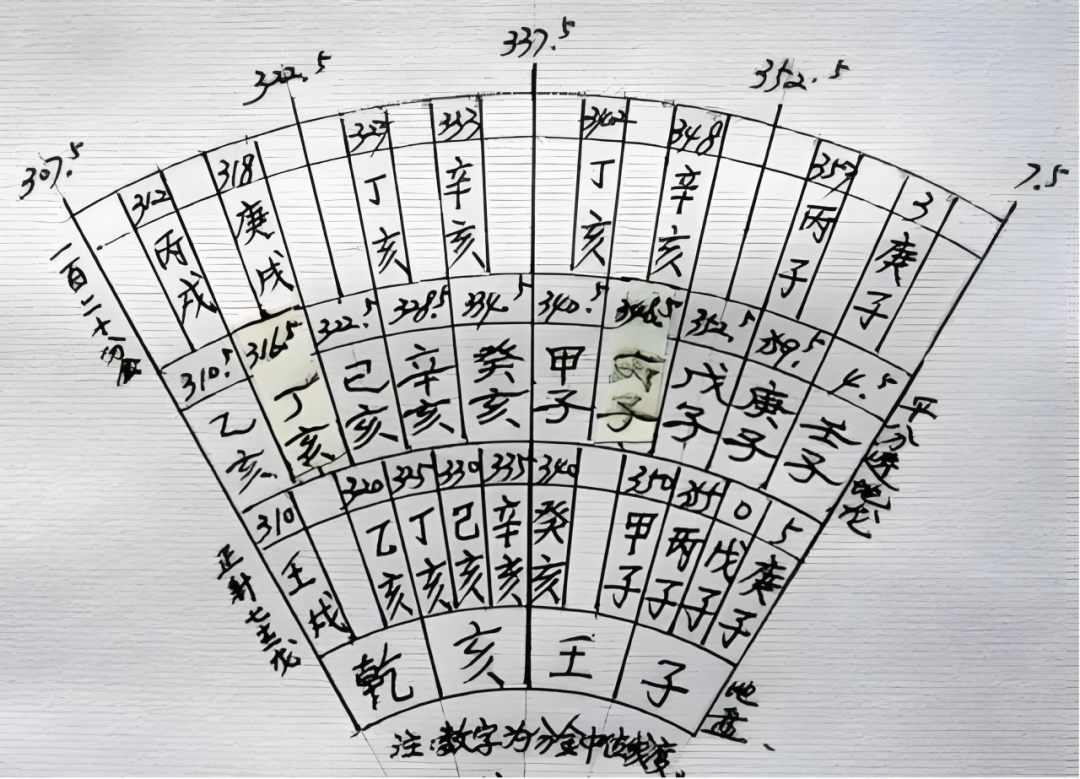 307.5 322.5 337.5 352.5 7.5
312 318 327 333 342 348 3
丙戌 庚戌 丁亥 辛亥 丁亥 辛亥 丙子 庚子
一百二十分金
310.5 316.5 322.5 328.5 334.5 340.5 346.5 352.5 4.5
乙亥 丁亥 己亥 辛亥 癸亥 甲子 丙子 戊子 庚子 壬子
平分透地龙
310 320 325 330 335 340 350 355 0 5
壬戌 乙亥 丁亥 己亥 辛亥 癸亥 甲子 丙子 戊子 庚子
正针七十二龙
乾 亥 壬 子
地盘
注:数字为分金中位线度。